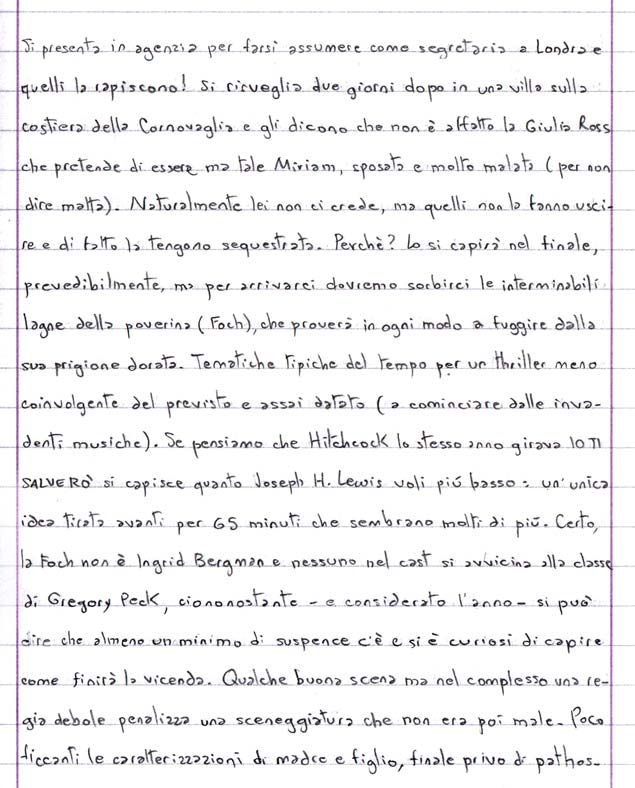 Si presenta in agenzia per farsi assumere come segretaria a Londra e
quelli la rapiscono! Si risveglia due giorni dopo in una villa sulla
costiera della Cornovaglia e gli dicono che non è affatto la Giulia Ross
che pretende di essere ma tale Miriam, sposata e molto malata (per non
dire matta). Naturalmente lei non ci crede, ma quelli non la fanno usci-
re e di fatto la tengono sequestrata. Perchè? Lo si capirà nel finale,
prevedibilmente, ma per arrivarci dovremo sorbirci le interminabili
lagne della poverina (Foch), che proverà in ogni modo a fuggire dalla
sua prigione dorata. Tematiche tipiche del tempo per un thriller meno
coinvolgente del previsto e assai datato (a cominciare dalle inva-
denti musiche). Se pensiamo che Hitchcock lo stesso anno girava IO TI
SALVERÒ si capisce quanto Joseph H. Lewis voli più basso: un'unica
idea tirata avanti per 65 minuti che sembrano molti di più. Certo,
la Foch non è Ingrid Bergman e nessuno nel cast si avvicina alla classe
di Gregory Peck, ciononostante - e considerato l'anno - si può
dire che almeno un minimo di suspence c'è e si è curiosi di capire
come finirà la vicenda. Qualche buona scena ma nel complesso una re-
gia debole penalizza una sceneggiatura che non era poi male. Poco
ficcanti le caratterizzazioni di madre e figlio, finale privo di pathos.